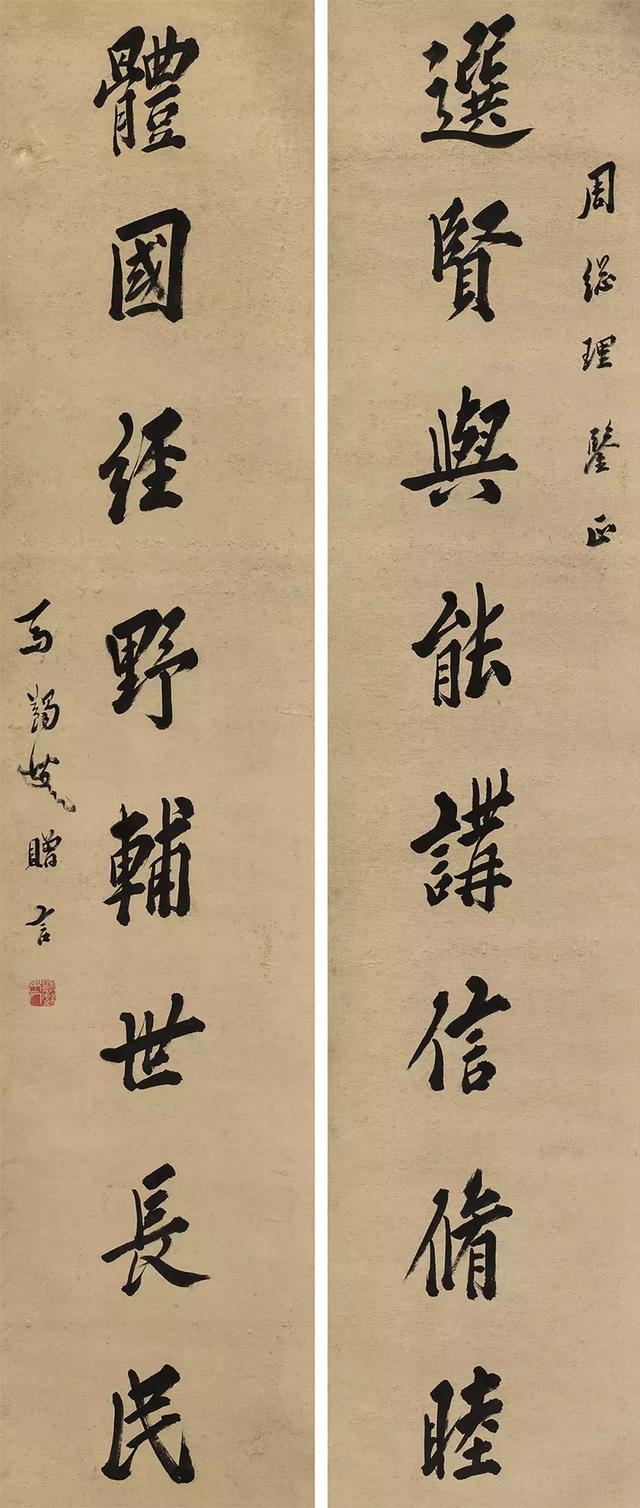 周總理鑒正
選賢與能講信脩睦
體國經野輔世長民
馬蠲叟贈言